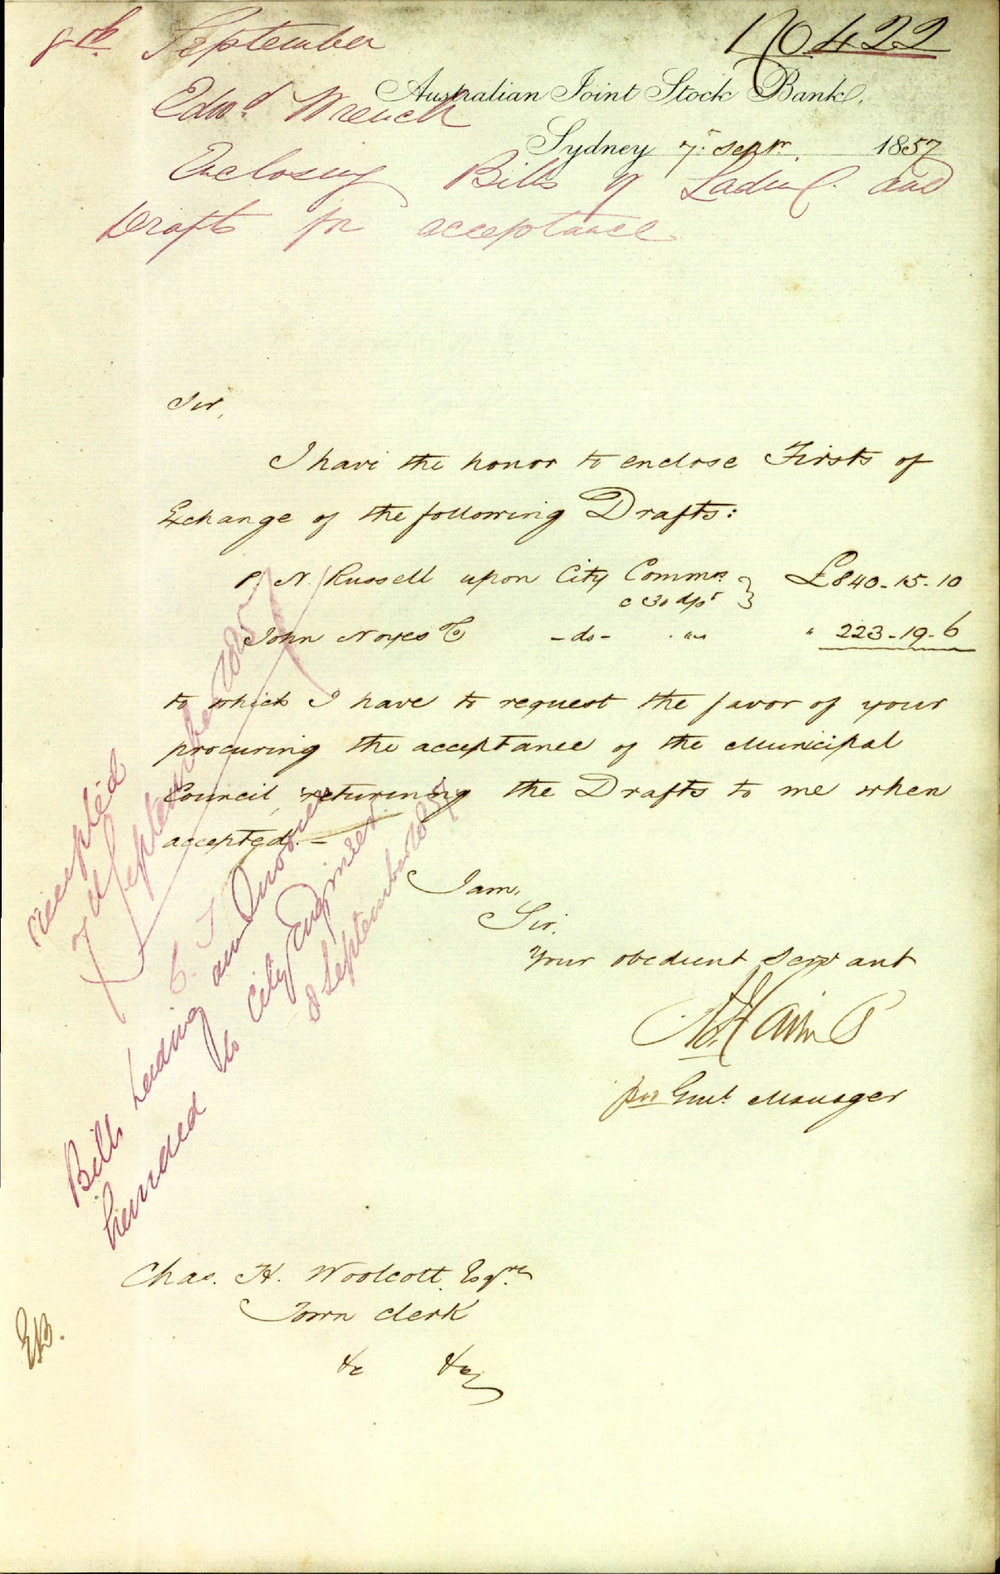 8th September
No 422
Edwd Wrench
Australian Joint Stock Bank,
Sydney 7th Septr. 1857
Enclosing Bills of Lading and
Drafts for acceptance
Sir,
I have the honor to enclose Firsts of
Exchange of the following Drafts:
P. N. Russell upon City Commrs £840-15-10
@ 30 d/st
John Noyes Co -do- " 223-19-6
to which I have to request the favor of your
procuring the acceptance of the Municipal
Council, returning the Drafts to me when
accepted. -
I am,
Sir,
Your obedient Servant
pro Genl. Manager
accepted
7th September 1857
Bills Lading and Invoices
handed to City Engineer
8 September 1857
Chas. H. Woolcott Esqre
Town Clerk
&c &c